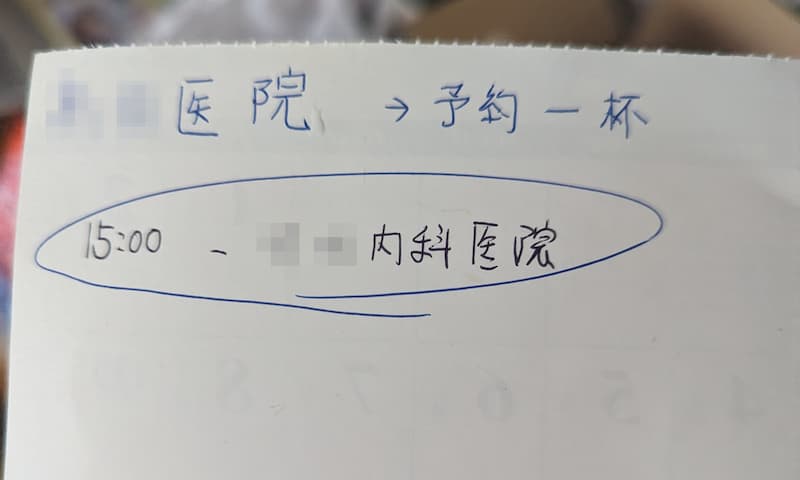 医院 → 予約一杯
15:00 - 内科医院